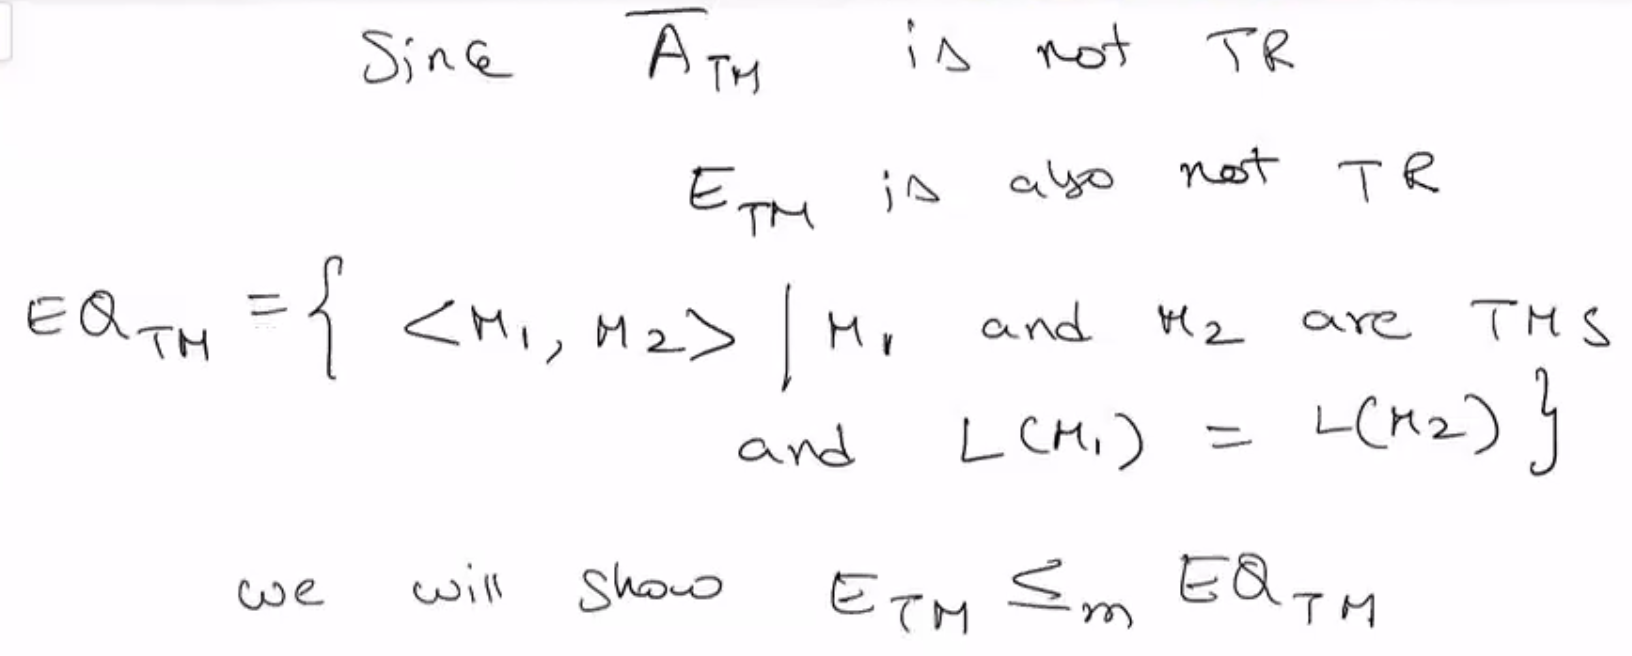 Since A̅_TM is not TR
E_TM is also not TR
EQ_TM = { <M₁, M₂> | M₁ and M₂ are TMS
and L(M₁) = L(M₂) }
we will show E_TM ≤_m EQ_TM